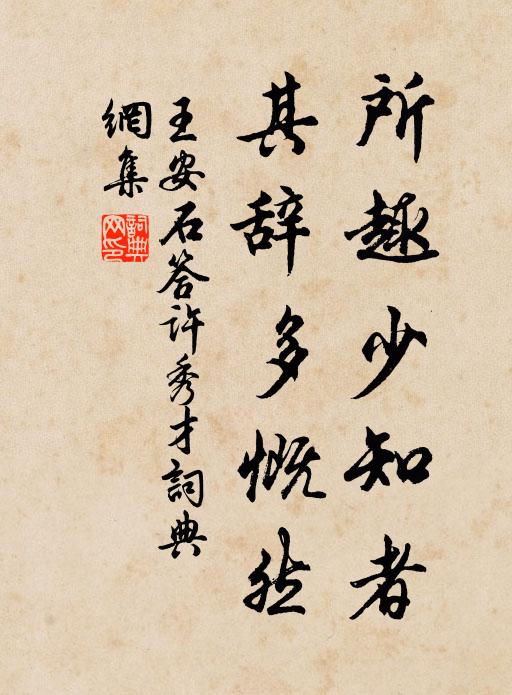 所趣少知者
其辞多慨然
王安石答许秀才詞典
網集
詞典网印